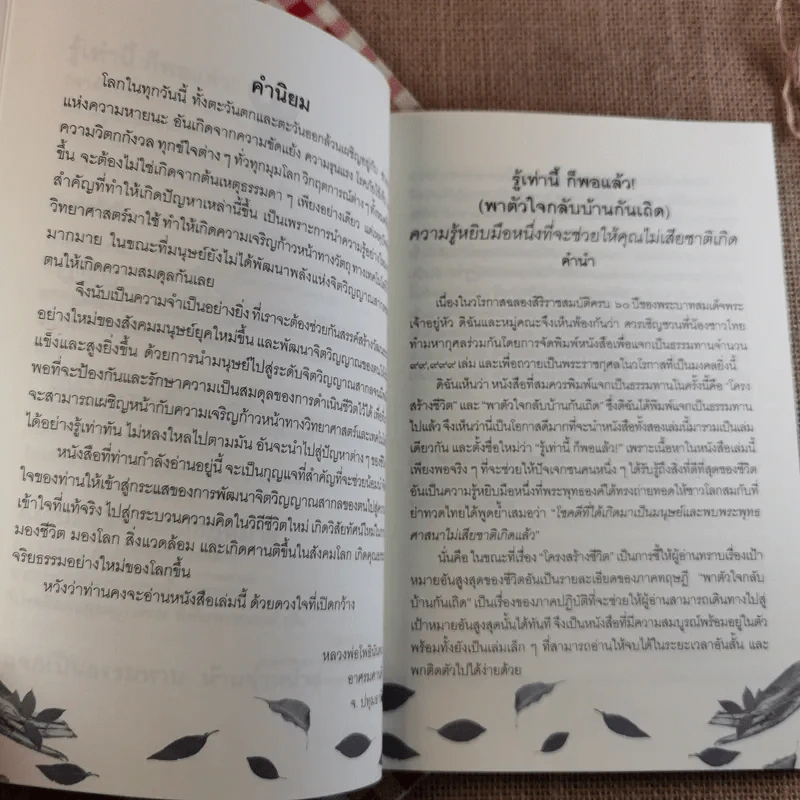 คำนิยม
โลกในทุกวันนี้ ทั้งตะวันตกและตะวันออกล้วนเผชิญอยู่กับ
แห่งความหายนะ อันเกิดจากความขัดแย้ง ความรุนแรง
ความวิตกกังวล ทุกข์ใจต่าง ๆ ทั่วทุกมุมโลก วิกฤตการณ์ต่าง ๆ
ขึ้น จะต้องไม่ใช่เกิดจากต้นเหตุธรรมดา ๆ เพียงอย่างเดียว
สำคัญที่ทำให้เกิดปัญหาเหล่านี้ขึ้น เป็นเพราะการนำความรู้
วิทยาศาสตร์มาใช้ ทำให้เกิดความเจริญก้าวหน้าทางวัตถุ
มากมาย ในขณะที่มนุษย์ยังไม่ได้พัฒนาพลังแห่งจิตวิญญาณ
ตนให้เกิดความสมดุลกันเลย
จึงนับเป็นความจำเป็นอย่างยิ่ง ที่เราจะต้องช่วยกันสรรค์สร้าง
อย่างใหม่ของสังคมมนุษย์ยุคใหม่ขึ้น และพัฒนาจิตวิญญาณของ
แข็งและสูงยิ่งขึ้น ด้วยการนำมนุษย์ไปสู่ระดับจิตวิญญาณสากล
พอที่จะป้องกันและรักษาความเป็นสมดุลของการดำเนินชีวิตไว้ได้
จะสามารถเผชิญหน้ากับความเจริญก้าวหน้าทางวิทยาศาสตร์และ
ได้อย่างรู้เท่าทัน ไม่หลงใหลไปตามมัน อันจะนำไปสู่ปัญหาต่าง ๆ
หนังสือที่ท่านกำลังอ่านอยู่นี้ จะเป็นกุญแจที่สำคัญที่จะช่วย
ใจของท่านให้เข้าสู่กระแสของการพัฒนาจิตวิญญาณสากลของตนไปสู่
เข้าใจที่แท้จริง ไปสู่กระบวนความคิดในวิถีชีวิตใหม่ เกิดวิสัยทัศน์ใหม่
มองชีวิต มองโลก สิ่งแวดล้อม และเกิดศานติขึ้นในสังคมโลก เกิด
จริยธรรมอย่างใหม่ของโลกขึ้น
หวังว่าท่านคงจะอ่านหนังสือเล่มนี้ ด้วยดวงใจที่เปิดกว้าง
หลวงพ่อโพธินันทะ
จ. ปทุม
รู้เท่านี้ ก็พอแล้ว!
(พาตัวใจกลับบ้านกันเถิด)
ความรู้หยิบมือหนึ่งที่จะช่วยให้คุณไม่เสียชาติเกิด
คำนำ
เนื่องในวโรกาสฉลองสิริราชสมบัติครบ ๖๐ ปีของพระบาทสมเด็จพระ
เจ้าอยู่หัว ดิฉันและหมู่คณะจึงเห็นพ้องกันว่า ควรเชิญชวนพี่น้องชาวไทย
ทำมหากุศลร่วมกันโดยการจัดพิมพ์หนังสือเพื่อแจกเป็นธรรมทานจำนวน
๙๙,๙๙๙ เล่ม และเพื่อถวายเป็นพระราชกุศลในวโรกาสที่เป็นมงคลยิ่งนี้
ดิฉันเห็นว่า หนังสือที่สมควรพิมพ์แจกเป็นธรรมทานในครั้งนี้คือ "โครง
สร้างชีวิต" และ "พาตัวใจกลับบ้านกันเถิด" ซึ่งดิฉันได้พิมพ์แจกเป็นธรรมทาน
ไปแล้ว จึงเห็นว่านี่เป็นโอกาสดีมากที่จะนำหนังสือทั้งสองเล่มนี้มารวมเป็นเล่ม
เดียวกัน และตั้งชื่อใหม่ว่า "รู้เท่านี้ ก็พอแล้ว!" เพราะเนื้อหาในหนังสือเล่มนี้
เพียงพอจริง ๆ ที่จะช่วยให้ปัจเจกชนคนหนึ่ง ๆ ได้รับรู้ถึงสิ่งที่ดีที่สุดของชีวิต
อันเป็นความรู้หยิบมือหนึ่งที่พระพุทธองค์ได้ทรงถ่ายทอดให้ชาวโลกสมกับที่
ย่าทวดไทยได้พูดย้ำเสมอว่า "โชคดีที่ได้เกิดมาเป็นมนุษย์และพบพระพุทธ
ศาสนาไม่เสียชาติเกิดแล้ว"
นั่นคือ ในขณะที่เรื่อง "โครงสร้างชีวิต" เป็นการชี้ให้ผู้อ่านทราบเรื่องเป้า
หมายอันสูงสุดของชีวิตอันเป็นรายละเอียดของภาคทฤษฎี "พาตัวใจกลับ
บ้านกันเถิด" เป็นเรื่องของภาคปฏิบัติที่จะช่วยให้ผู้อ่านสามารถเดินทางไปสู่
เป้าหมายอันสูงสุดนั้นได้ทันที จึงเป็นหนังสือที่มีความสมบูรณ์พร้อมอยู่ในตัว
พร้อมทั้งยังเป็นเล่มเล็ก ๆ ที่สามารถอ่านให้จบได้ในระยะเวลาอันสั้น และ
พกติดตัวไปได้ง่ายด้วย